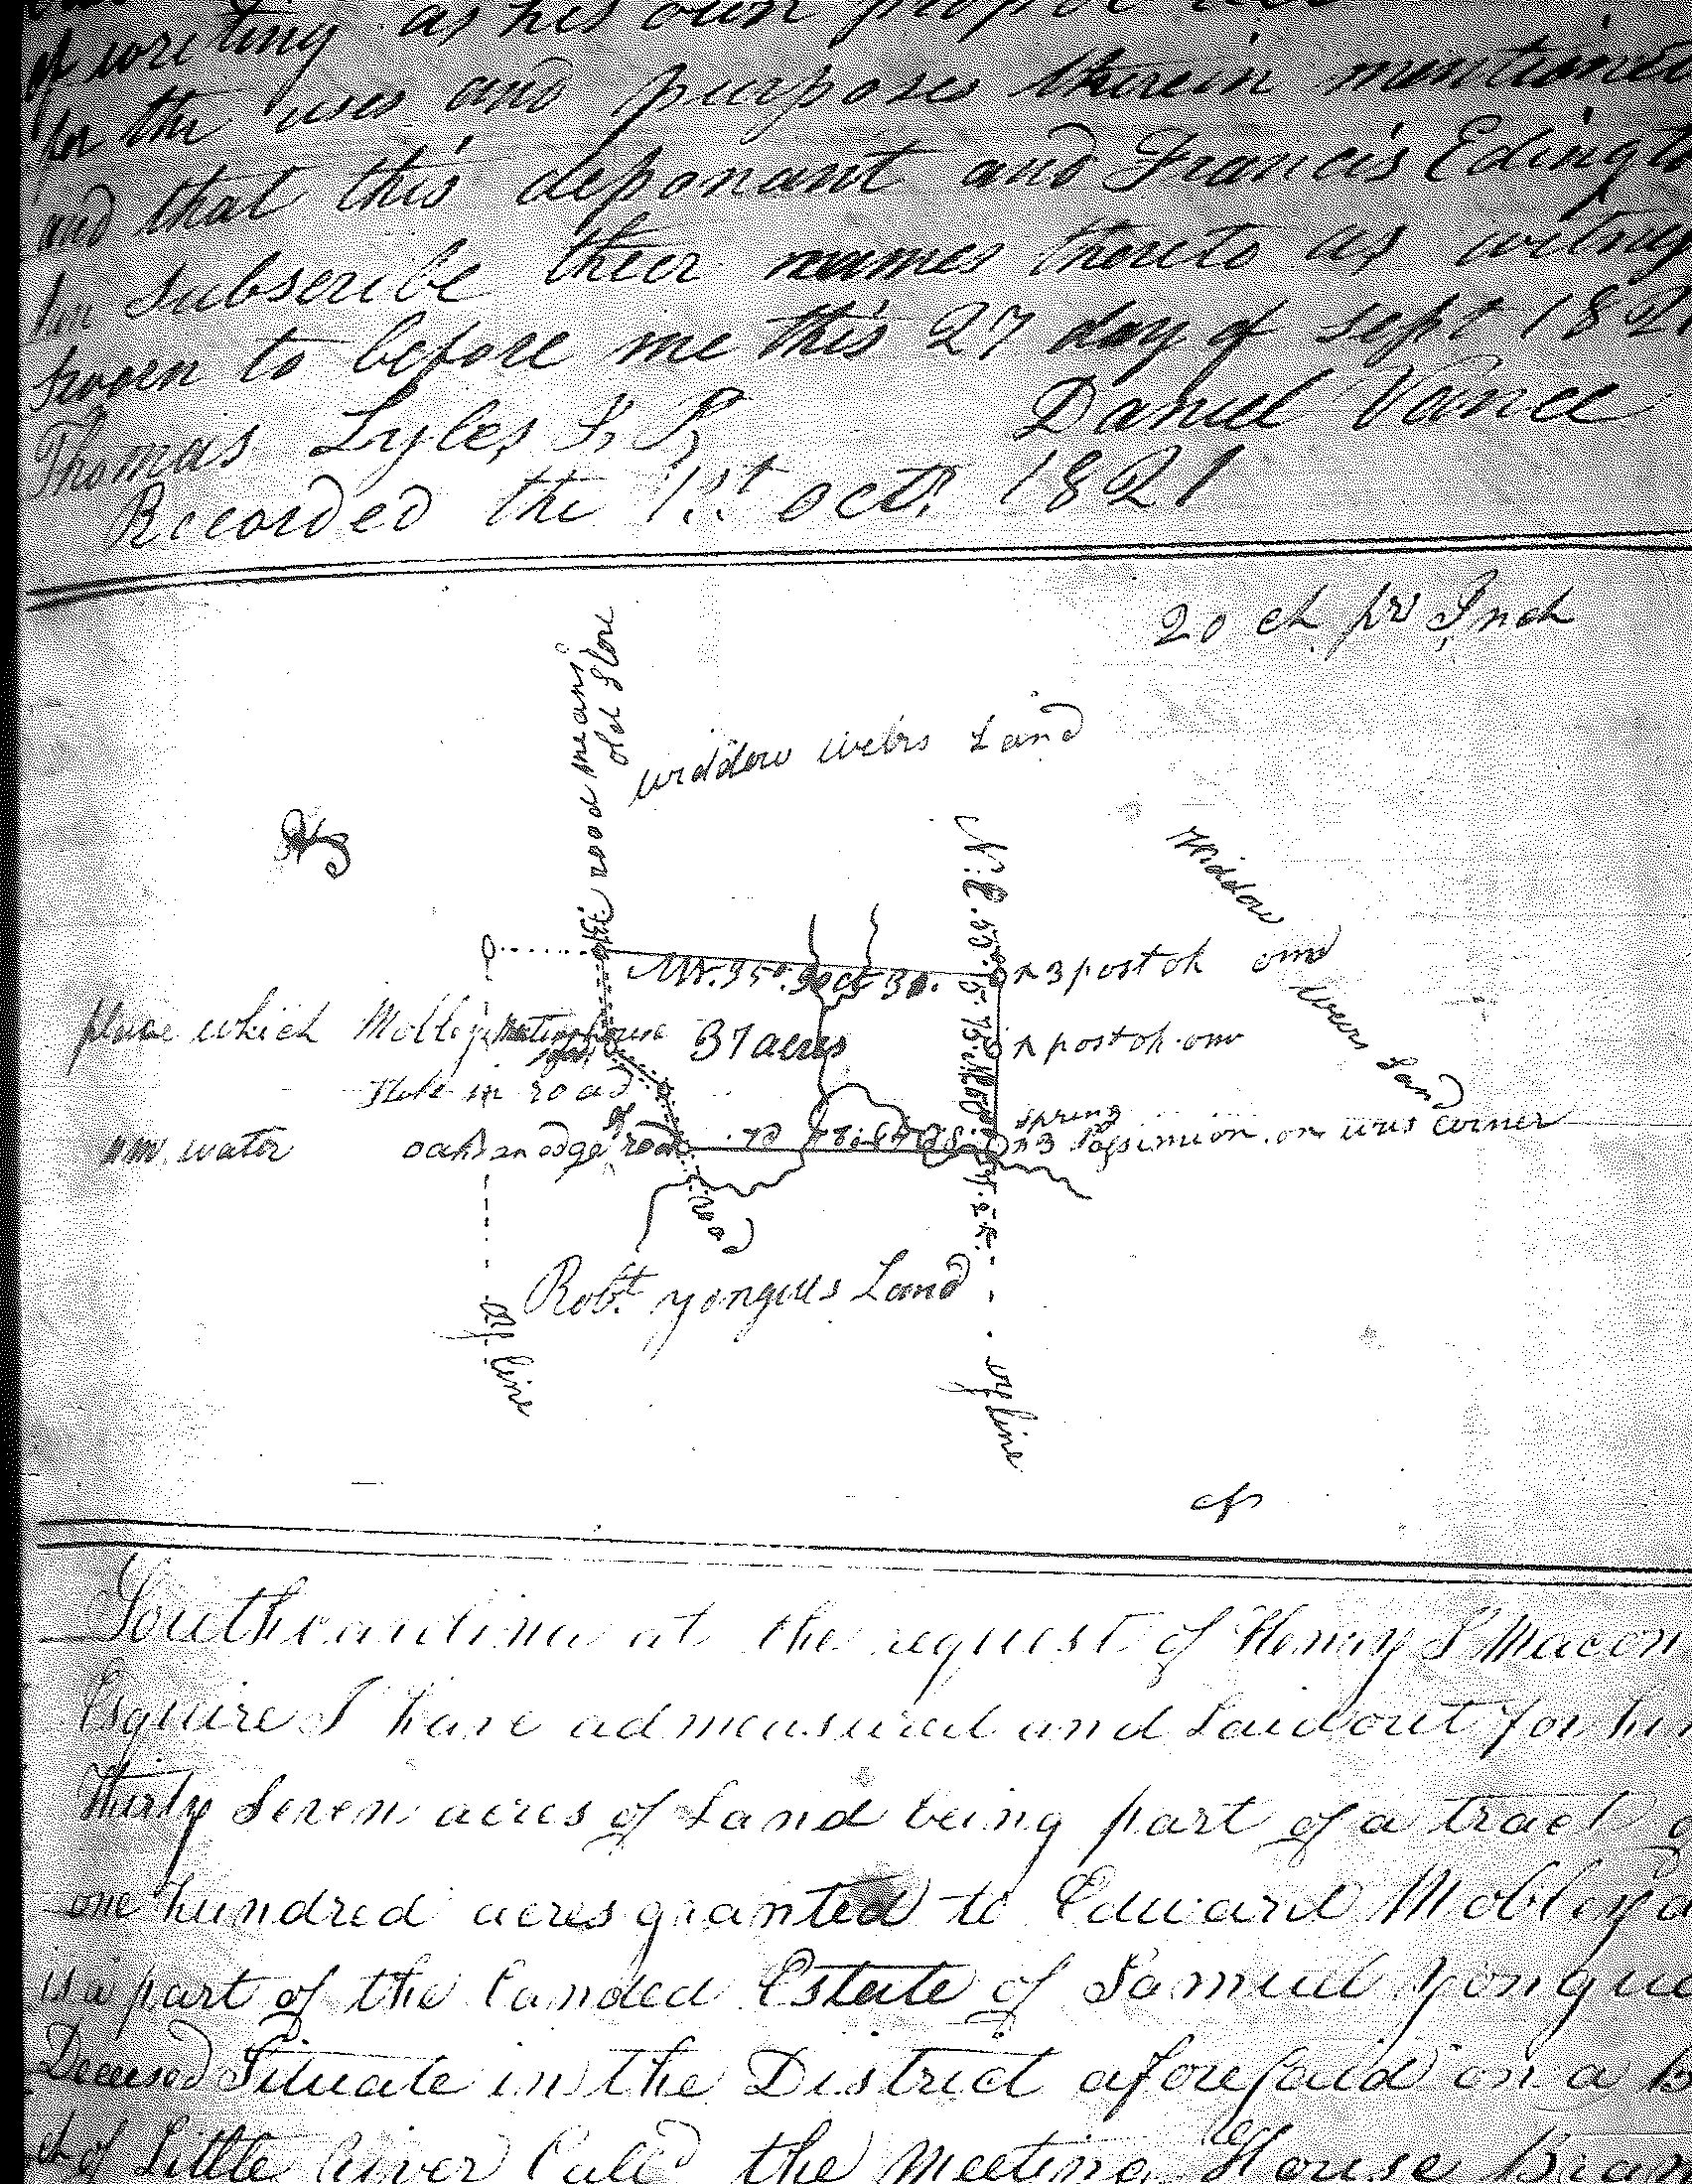 of writing as his own proper
for the uses and purposes therein mentioned
and that this deponant and Francis Edingto
subscribe thier names thereto as witness
sworn to before me this 27 day of sept 1821
Thomas Lyles J. P. Daniel Vance
Recorded the 1st octr 1821
20 ch pr Inch
the road means
old Store
widdow weirs Land
Widdow weirs Land
N. E. 55
NW. 35
x 3 post ok
place which Mobley Meting house
37 acres
x post ok
Stake in road
spring
water oak on edge of road
x3 Passimion on wirs corner
Road
Robt. yongues Land
line
line
Southcarolina at the request of Henry S Macon
Esquire I have admeasured and Laid out for him
Thirty Seven acres of Land being part of a tract of
one hundred acres granted to Edward Mobley
is a part of the Landed Estate of Samuel yongue
Deceased Situate in the District aforesaid on a B
ch of Little River Calld the Meeting House Bran